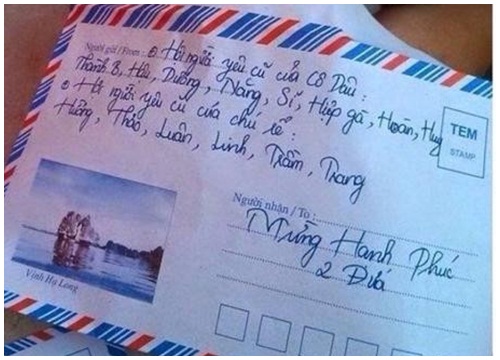 Người gửi / From : ⊙ Hội người yêu cũ của Cô Dâu :
Thành B, Hậu, Dương, Năng, Sĩ, Hiệp gà, Hoàn, Huy
⊙ Hội người yêu cũ của chú rể :
Hường, Thảo, Luân, Linh, Trầm, Trang
TEM
STAMP
Người nhận / To :
Mừng Hạnh Phúc
2 Đứa
Vịnh Hạ Long